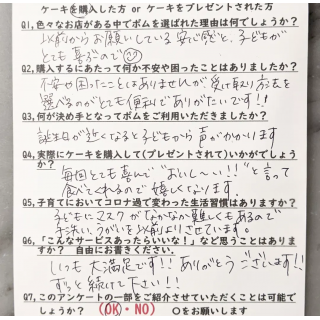 ケーキを購入した方 or ケーキをプレゼントされた方
Q1,色々なお店がある中でボムを選ばれた理由は何でしょうか?
以前からお願いしている安心感と、子どもが
とても喜ぶので
Q2,購入するにあたって何か不安や困ったことはありましたか?
不安や困ったことはありませんが、受け取り方法を
選べるのがとても便利でありがたいです!!
Q3,何が決め手となってボムをご利用いただきましたか?
誕生日が近くなると子どもから声がかかります
Q4,実際にケーキを購入して(プレゼントされて)いかがでしょうか?
毎回とても喜んで"おいし〜い!!"と言って
食べてくれるので嬉しくなります。
Q5,子育てにおいてコロナ過で変わった生活習慣はありますか?
子どもにマスクがなかなか難しくもあるので
手洗い、うがいを以前よりさせています。
Q6,「こんなサービスあったらいいな!」など思うことはありますか? 自由にお書きください。
いつも大満足です!! ありがとうございます!!
ずっと続けて下さい!!
Q7,このアンケートの一部をご紹介させていただくことは可能でしょうか? (OK・NO) 〇をお願いします